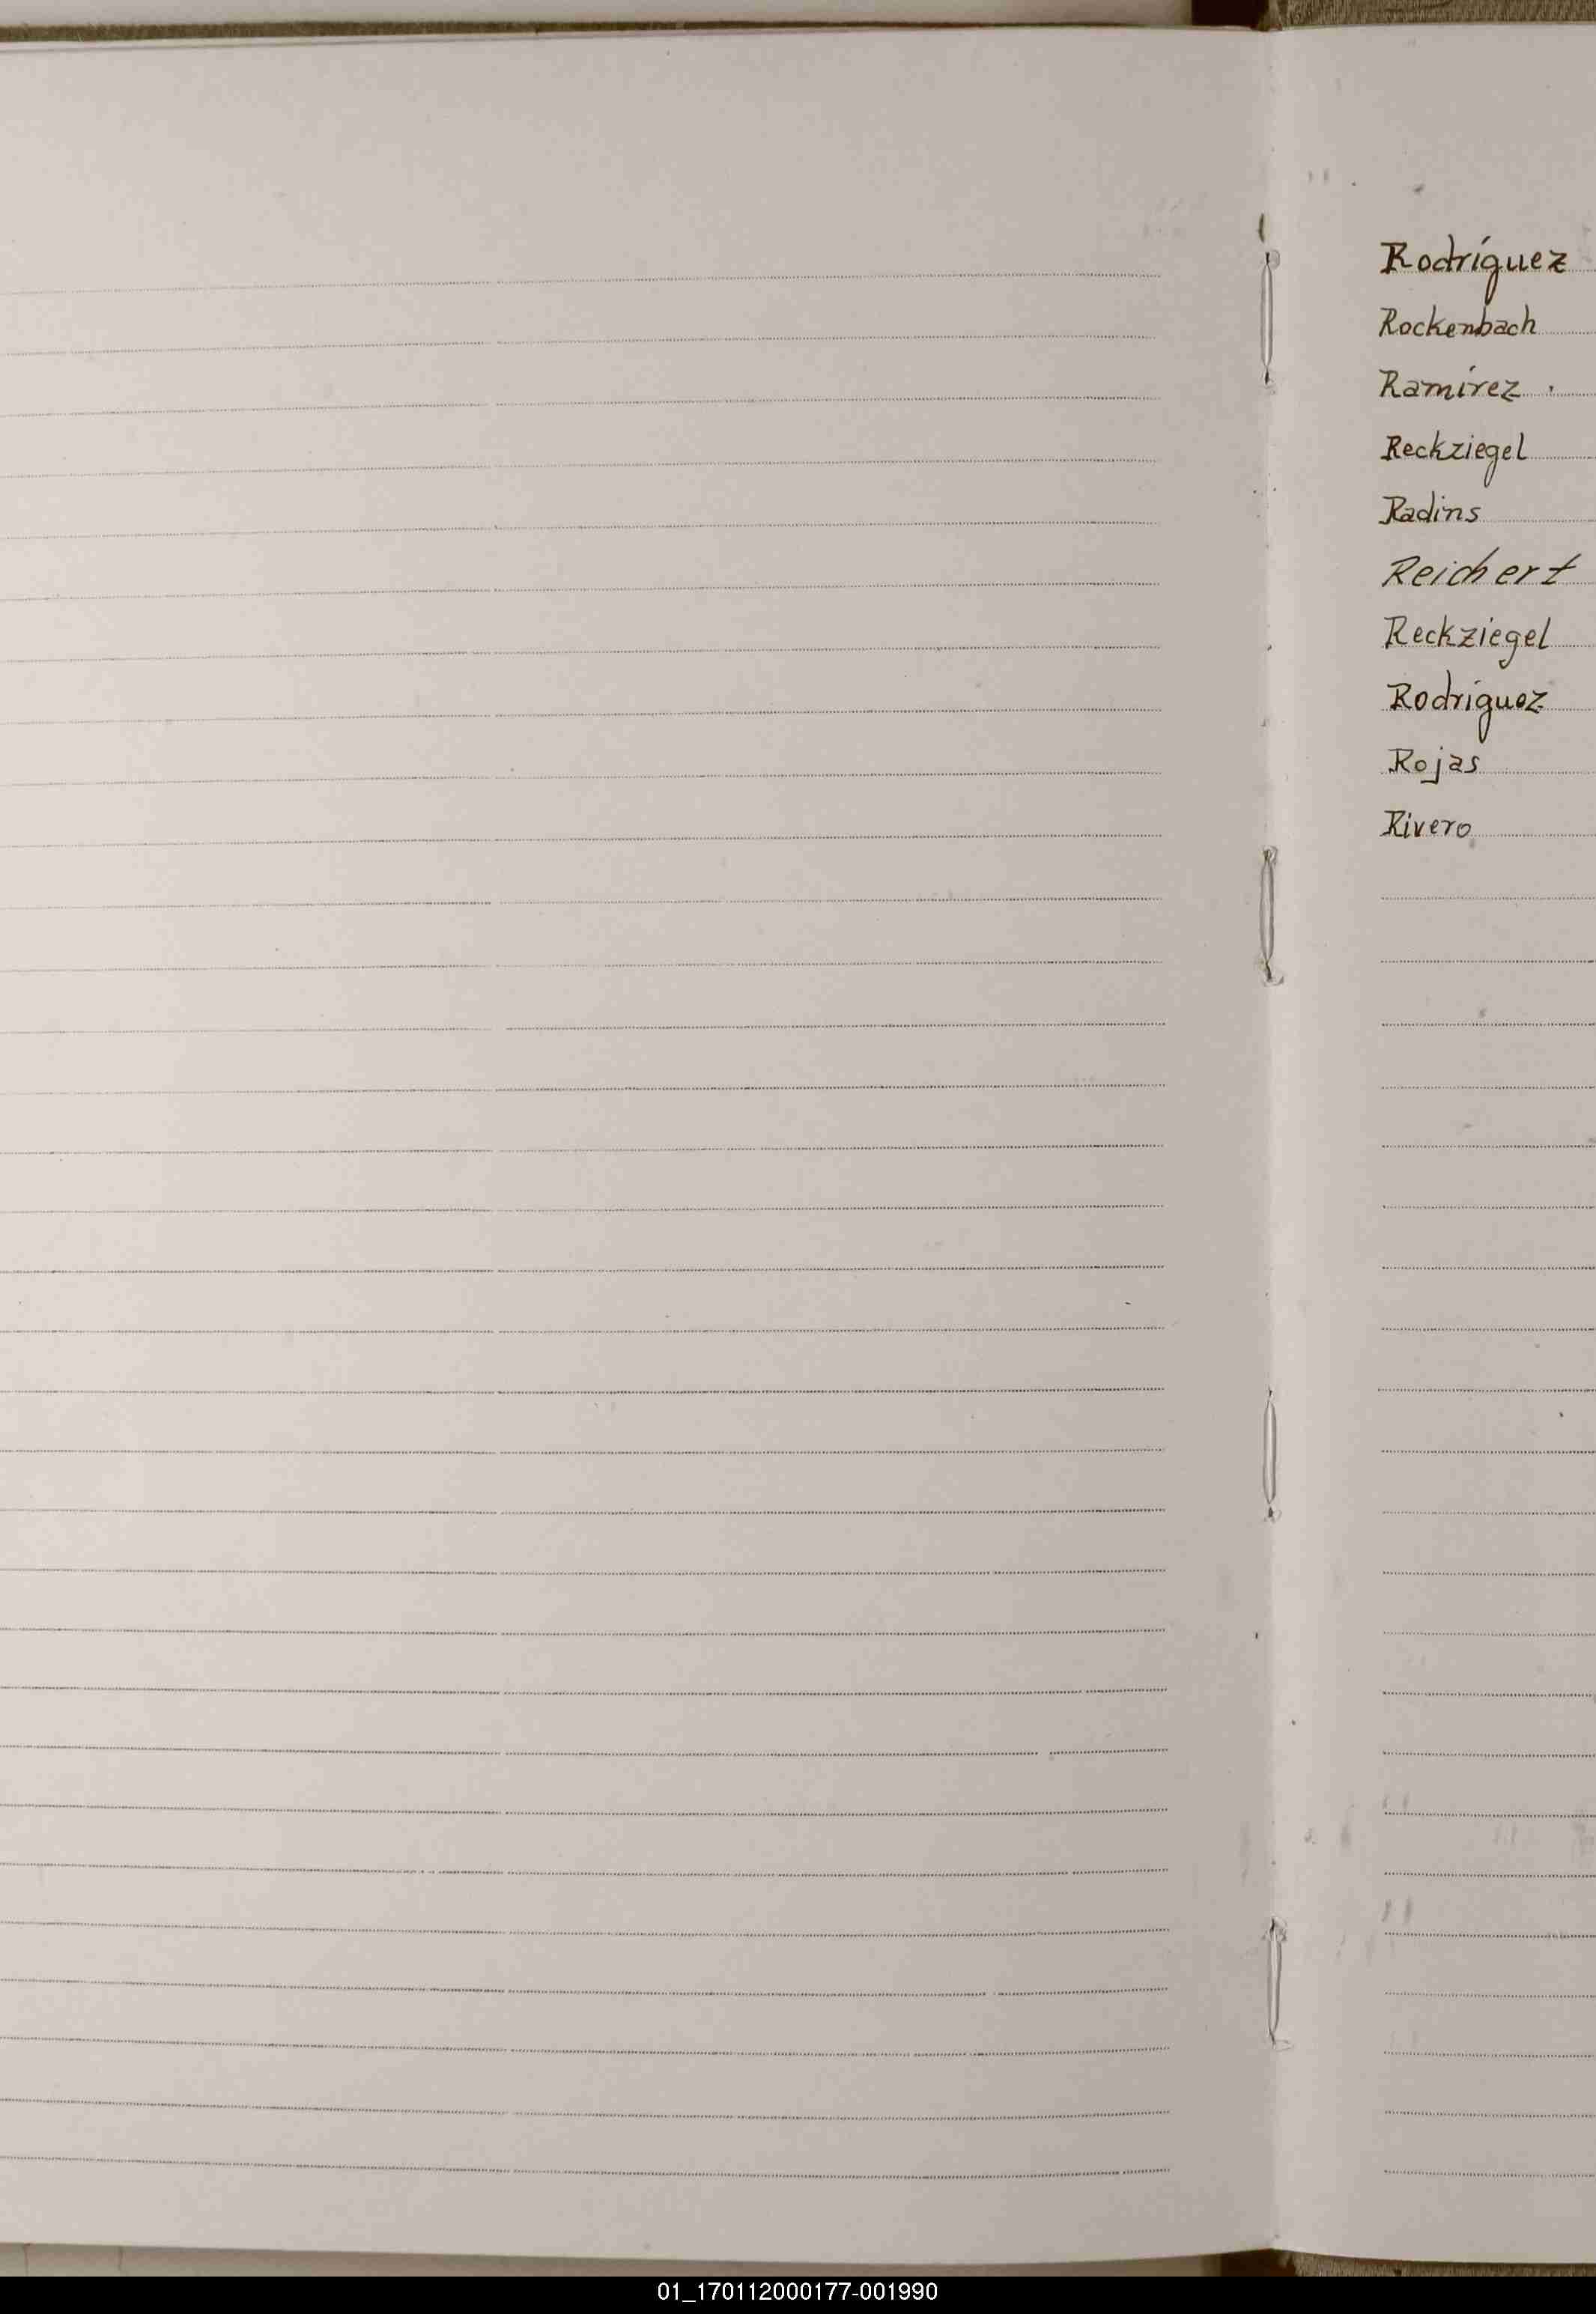 Rodríguez
Rockenbach
Ramírez
Reckziegel
Radins
Reichert
Reckziegel
Rodríguez
Rojas
Rivero
01_170112000177-001990